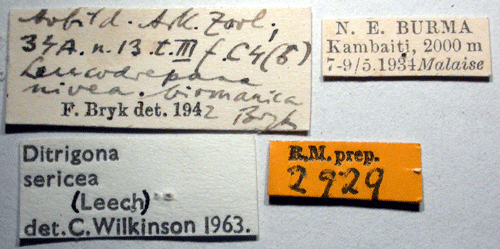 Aobild. Ark. Zool;
34A. n. 13. t. III f. C4 (6)
Leucodrepana
nivea. birmanica
F. Bryk det. 1942 Bryk
N. E. BURMA
Kambaiti, 2000 m
7-9/5.1934 Malaise
Ditrigona
sericea
(Leech)
det. C. Wilkinson 1963.
R.M. prep.
2929